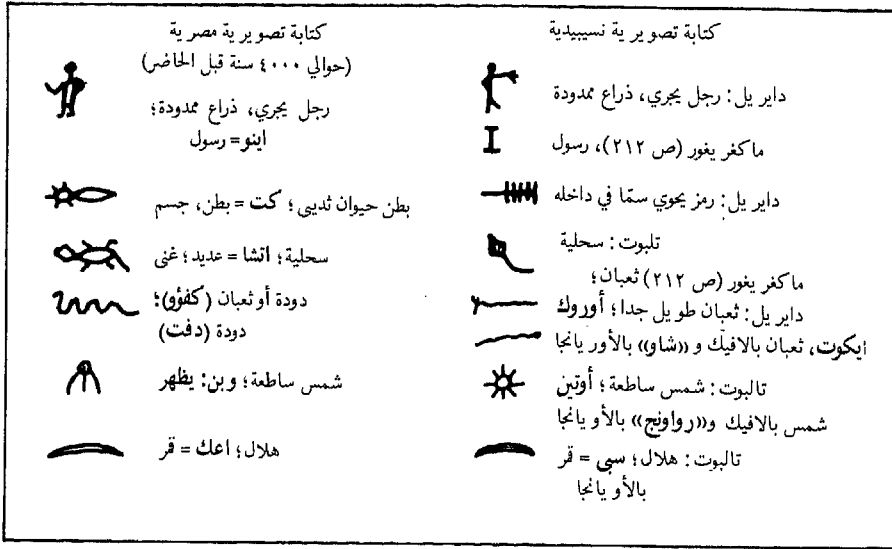 كتابة تصويرية نسيبيدية
داير يل: رجل يجري، ذراع ممدودة
ماكغر يغور (ص ٢١٢)، رسول
داير يل: رمز يحوي سمّا في داخله
تلبوت: سحلية
ماكغر يغور (ص ٢١٢) ثعبان؛
داير يل: ثعبان طويل جدا؛ أوروك
ايكوت، ثعبان بالافيك و «شاو» بالأور يانجا
تالبوت: شمس ساطعة؛ أوتين
شمس بالافيك و«رواونج» بالأو يانجا
تالبوت: هلال؛ سبى = قمر
بالأو يانجا
كتابة تصويرية مصرية
(حوالي ٤٠٠٠ سنة قبل الحاضر)
رجل يجري، ذراع ممدودة؛
اينو= رسول
بطن حيوان ثديى؛ كت = بطن، جسم
سحلية؛ اتشا = عديد؛ غنى
دودة أو ثعبان (كفؤو)؛
دودة (دفت)
شمس ساطعة؛ وبن: يظهر
هلال؛ اعك = قمر